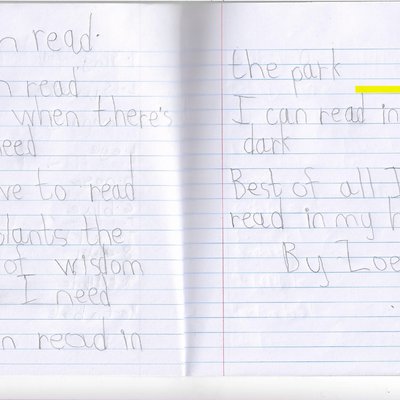 n read.
n read
when there's
need
ve to read
plants the
of wisdom
I need
n read in
the park
I can read in
dark
Best of all I
read in my h
By Zoe